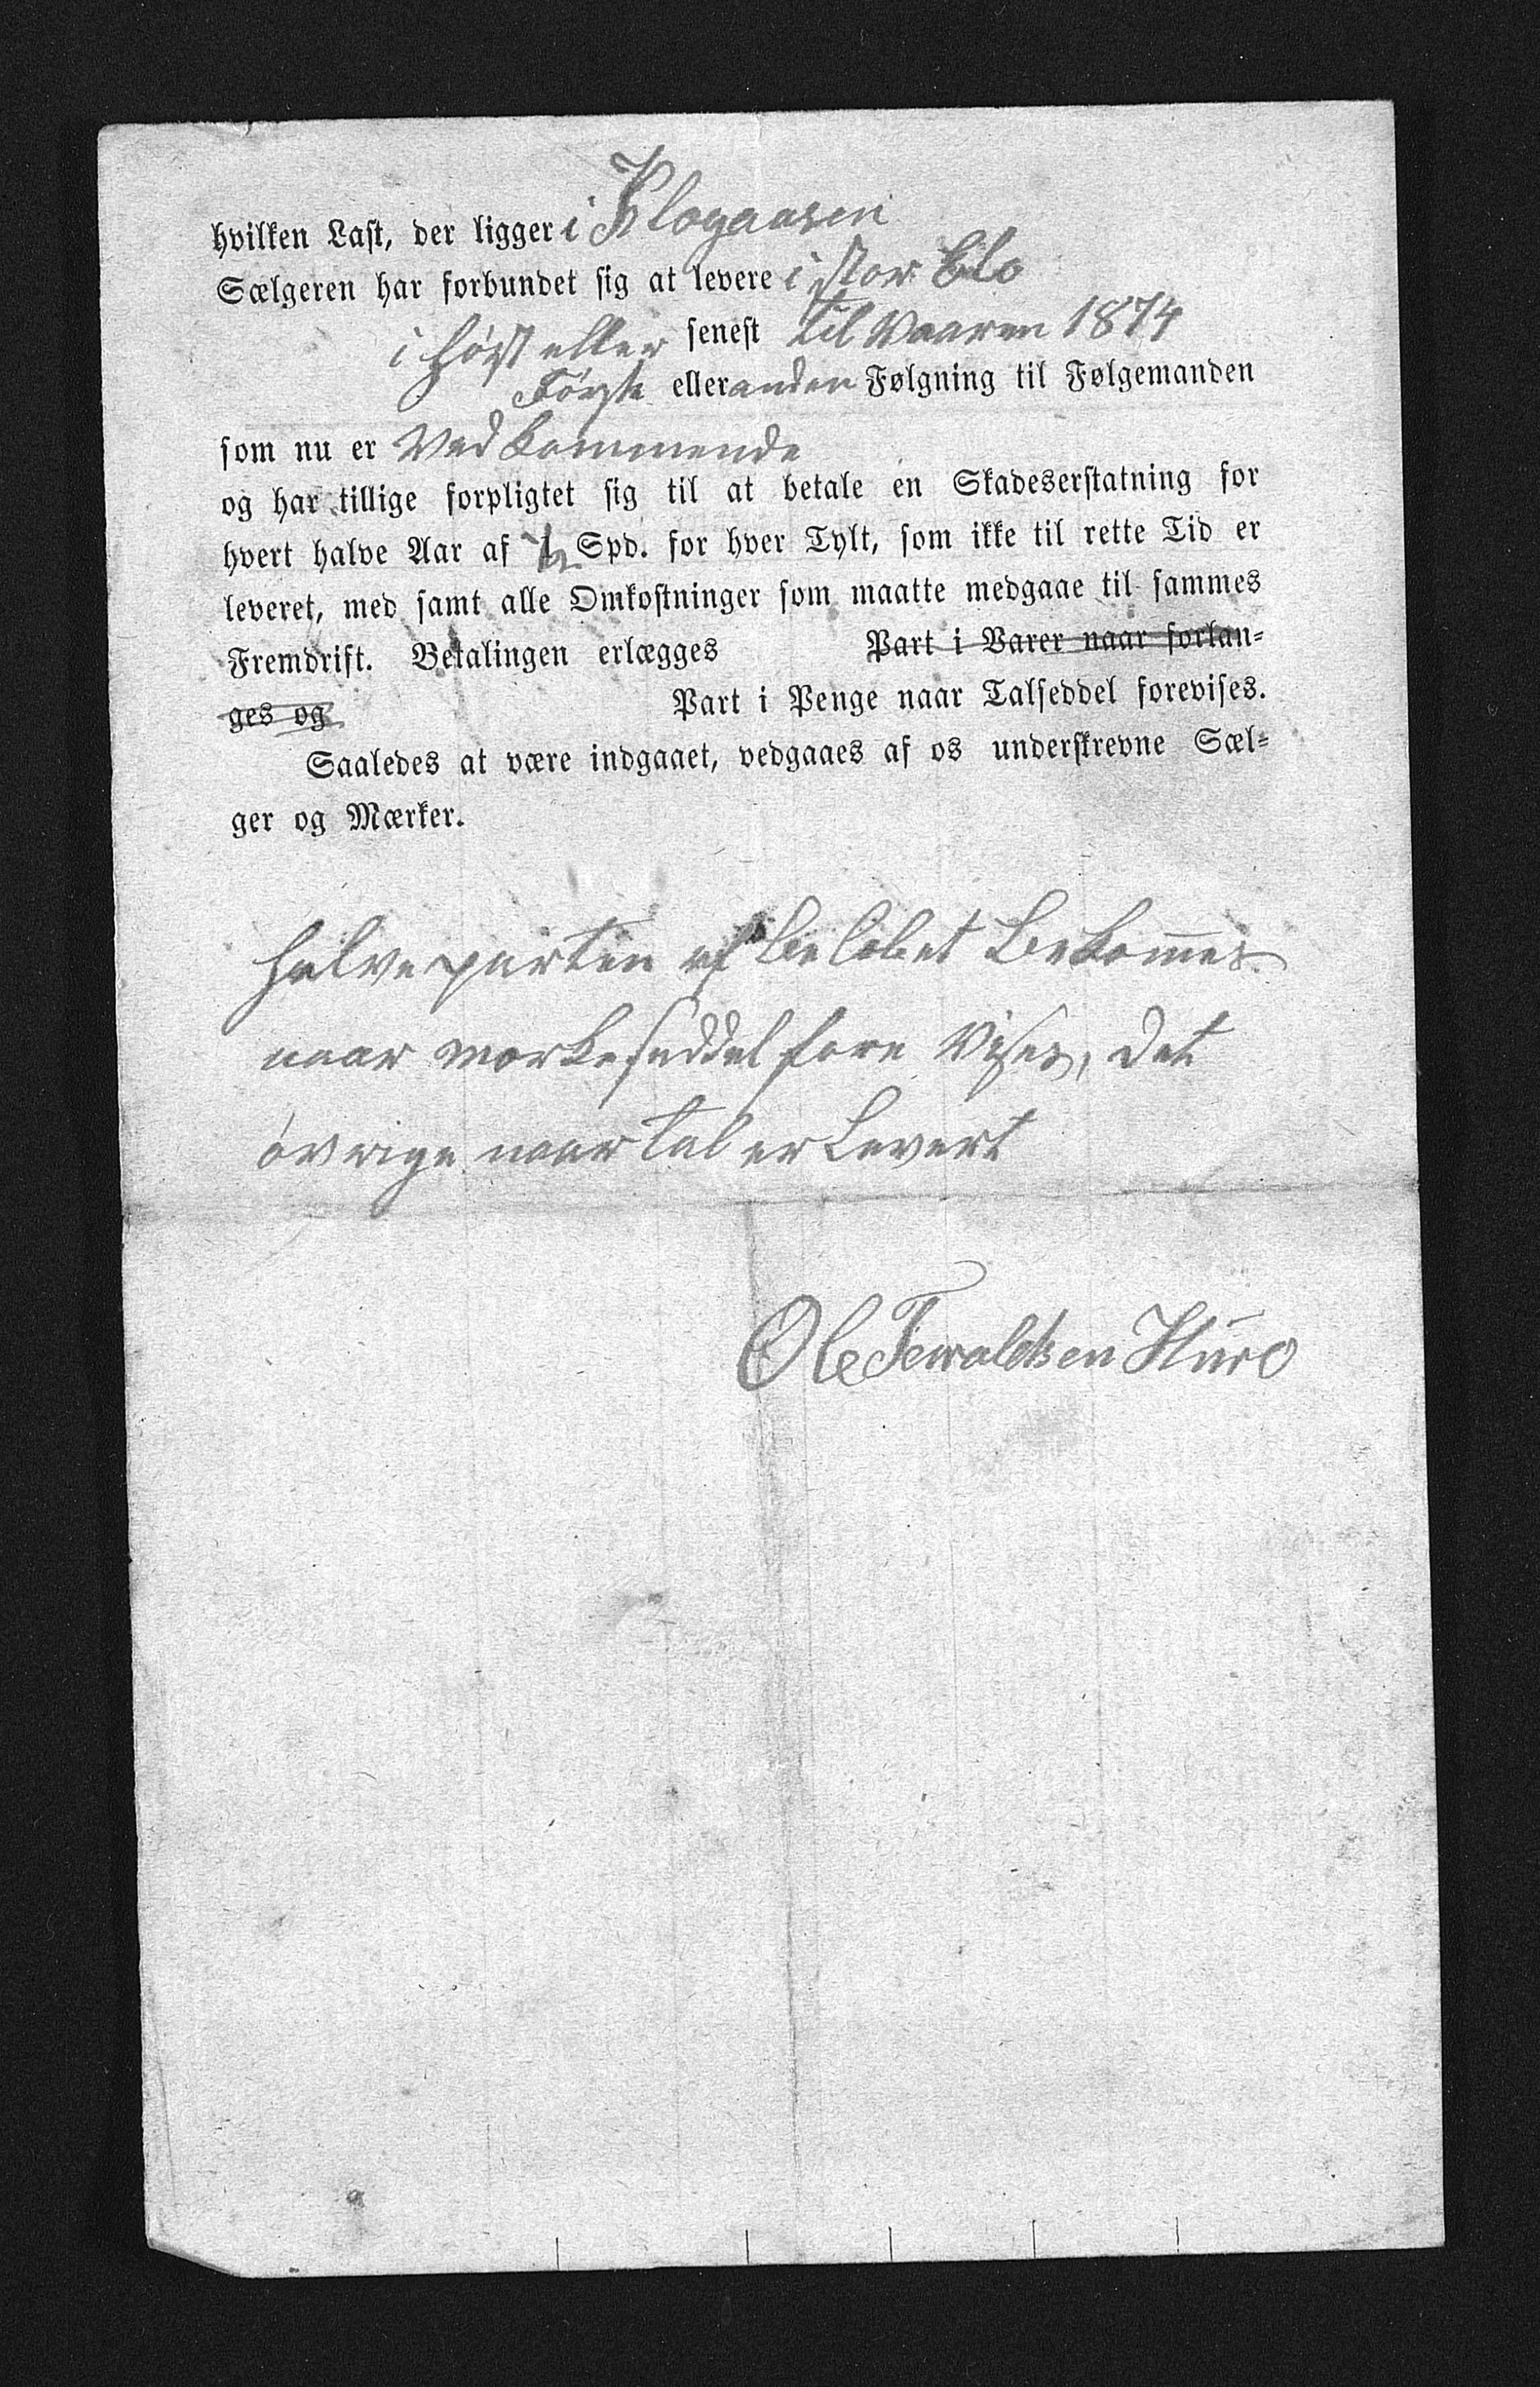 hvilken Last, der ligger i Klogaasen
Sælgeren har forbundet sig at levere i stor Elv
i høst eller senest til Vaaren 1874
Første eller anden Følgning til Følgemanden
som nu er Vedkommende
og har tillige forpligtet sig til at betale en Skadeserstatning for
hvert halve Aar af ½ Spd. for hver Tylt, som ikke til rette Tid er
leveret, med samt alle Omkostninger som maatte medgaae til sammes
Fremdrift. Betalingen erlægges Part i Varer naar forlan-
ges og Part i Penge naar Talseddel forevises.
Saaledes at være indgaaet, vedgaaes af os underskrevne Sæl-
ger og Mærker.
halveparten af Beløbet Bekommes
naar morkeseddel fore Vises, det
øvrige naar tal er Levert
Ole